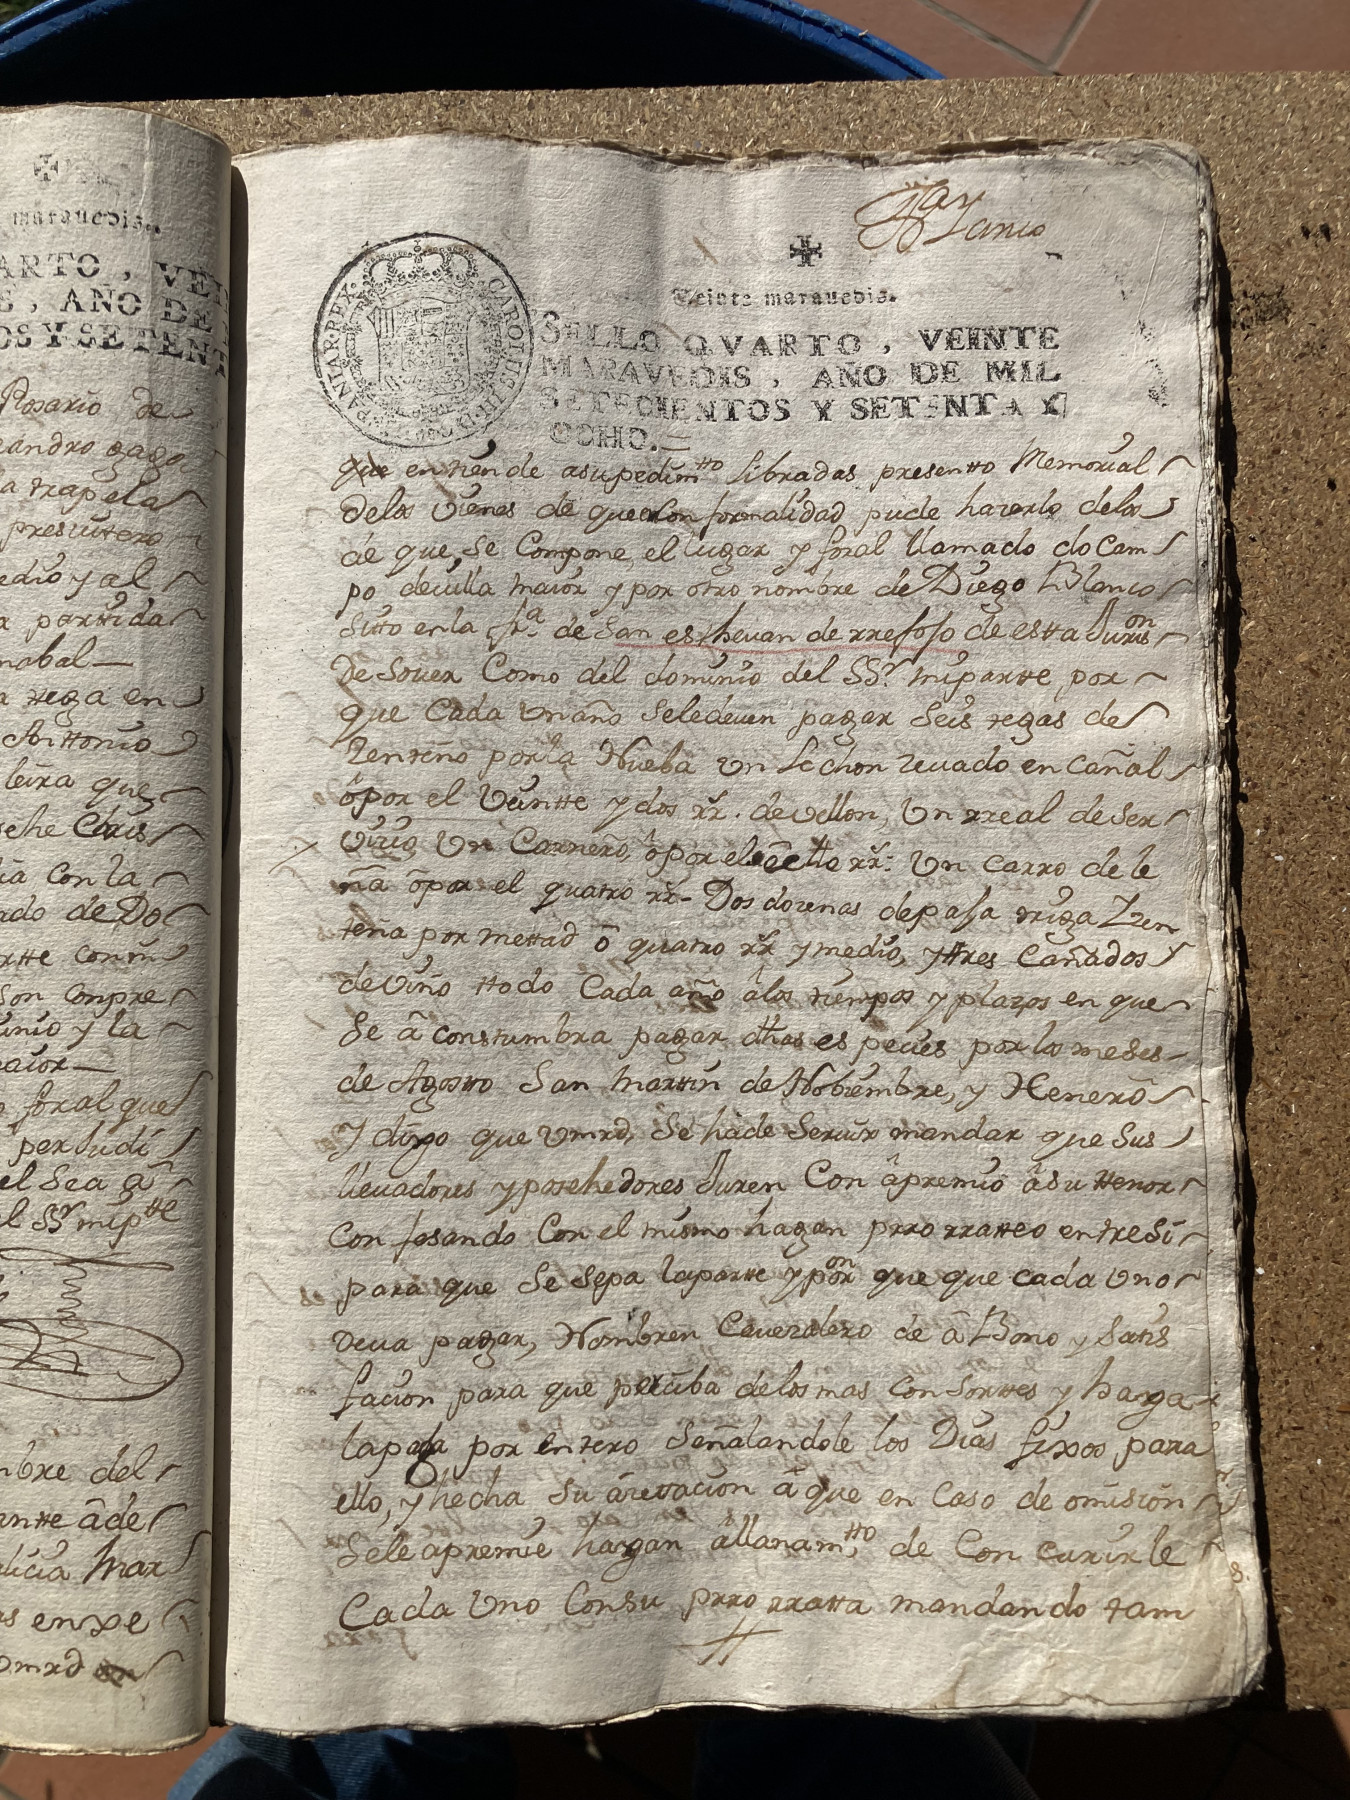 marauedis.
ARTO, VEI
E, AÑO DE
OS Y SETENT
Rosario de
eandro gago
a trapela
presvitero
edio y al
a parttida
nabal
a tega en
Anttonio
leira que
sehe Chris
ia con la
ado de Do
rtte con mi
son compre
inio y la
maior
o foral que
perludi
el Sea â
l SSr mi ptte
mbre del
antte âde
alicia Mar
as enxe
vmrd
Blanco
✠
Veinte marauedis.
CAROLUS III D G HISPANIAR REX
SELLO QVARTO, VEINTE
MARAVEDIS, AÑO DE MIL
SETECIENTOS Y SETENTA Y
OCHO.
que entiende asu pedimtto libradas presentto Memorial
de los vienes de que con formalidad pude hacerlo de los
de que se Compone el lugar y foral llamado do Cam
po de cilla maior y por otro nombre de Diego Blanco
Sitto en la fra de San esthevan de rrefoxo de estta Jurison
de Sover Como del dominio del SSr mi partte por
que Cada un año se le deven pagar Seis tegas de
Zenteno por la Nueba un lechon zevado en cañal
ô por el veintte y dos rr. de vellon, un rreal de ser
vicio un Carnero, ô por el ochto rr. un carro de le
ña ô por el quatro rr. Dos dozenas de paja triga Zzen
teña por mettad ô quatro rr y medio, y ttres cañados
de vino ttodo Cada año â los tiempos y plazos en que
Se â constumbra pagar dthas espezies por los meses
de Agostto San Martin de Nobiembre, y Henero
Y digo que vmrd, Se hâ de Servir mandar que Sus
llevadores y poshehedores Juren Con âpremio â su ttenor
Confesando Con el mismo hagan prrorratteo entre Si
para que Se Sepa la parte y poron que que cada uno
Deva pagar, Nombren Cavezalero de âBono y Satis
facion para que perciba de los mas Consorttes y haga
la paga por entero Señalandole los Dias fixos para
ello, y hecha Su acettacion â que en Caso de omision
Sele apremie hagan âllanamtto de Concurirle
Cada uno Con su prrorratta mandando tam